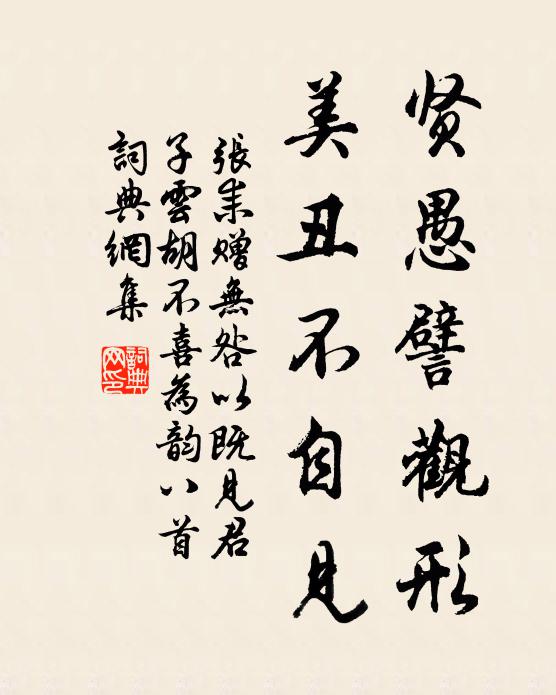 贤愚譬觀形
美丑不自見
張耒贈無咎以既見君
子雲胡不喜為韵八首
詞典網集
詞典网印